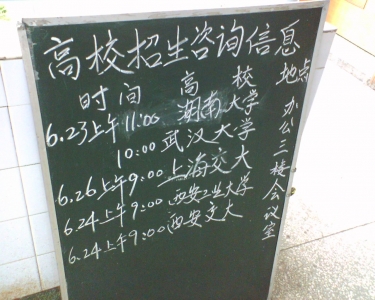 高校招生咨询信息
时间 高校 地点
6.23上午11:00 湖南大学
10:00 武汉大学
6.26上午9:00 上海交大
6.24上午9:00 西安工业大学
6.24上午9:00 西安交大
办公三楼会议室